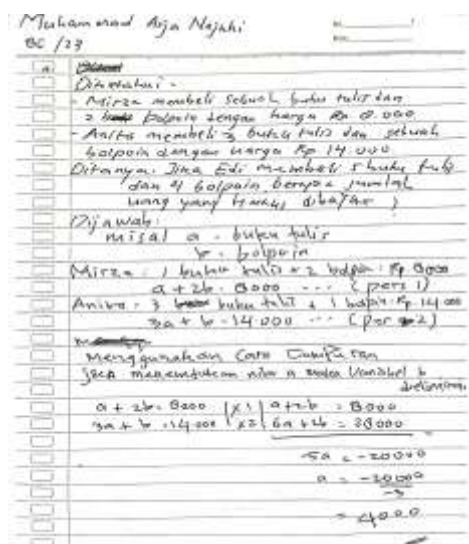 Muhammad Arja Najahi
8C /23
Diketahui -
- Mirza membeli sebuah buku tulis dan
2 bolpoin dengan harga Rp 8.000
- Anita membeli 3 buku tulis dan sebuah
bolpoin dengan harga Rp 14.000
Ditanya: Jika Edi membeli 5 buku tulis
dan 4 bolpoin berapa jumlah
uang yang harus dibayar ?
Dijawab:
misal a = buku tulis
b = bolpoin
Mirza : 1 buku tulis + 2 bolpoin : Rp 8000
a + 2b = 8000 ... (pers 1)
Anita : 3 buku tulis + 1 bolpoin : Rp. 14.000
3a + b = 14.000 ... (pers 2)
Menggunakan cara campuran
menentukan nilai a maka Variabel b
dieliminasi
a + 2b = 8000 | x1 | a + 2b = 8000
3a + b = 14.000 | x2 | 6a + 2b = 28000
-5a = -20000
a = -20000
-5
= 4000